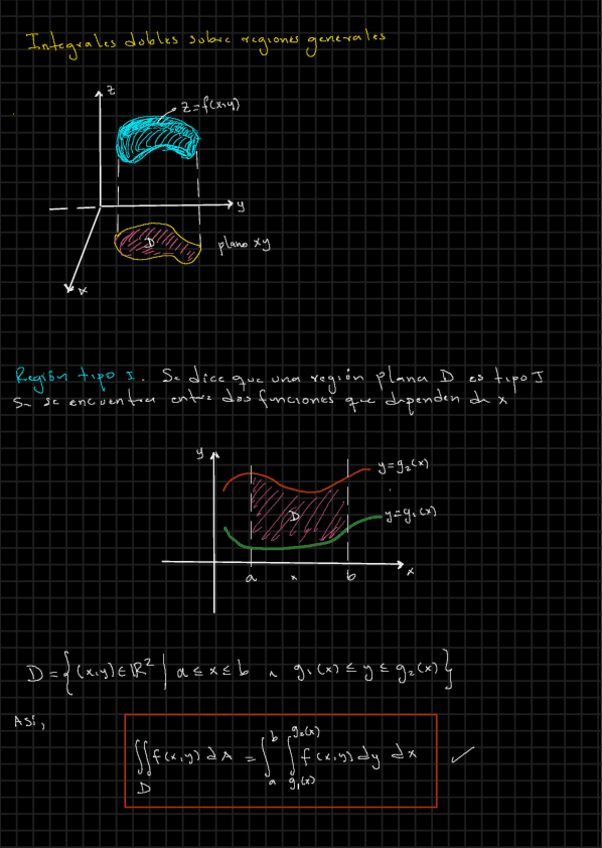 Integrales dobles sobre regiones generales
z
z=f(x,y)
y
D
plano xy
x
Región tipo I. Se dice que una región plana D es tipo I
Si se encuentra entre dos funciones que dependen de x
y
y=g₂(x)
D
y=g₁(x)
a x b x
D={(x,y)∈ℝ² | a≤x≤b ∧ g₁(x)≤y≤g₂(x)}
Así,
∬_D f(x,y) dA = ∫_a^b ∫_{g₁(x)}^{g₂(x)} f(x,y) dy dx ✓